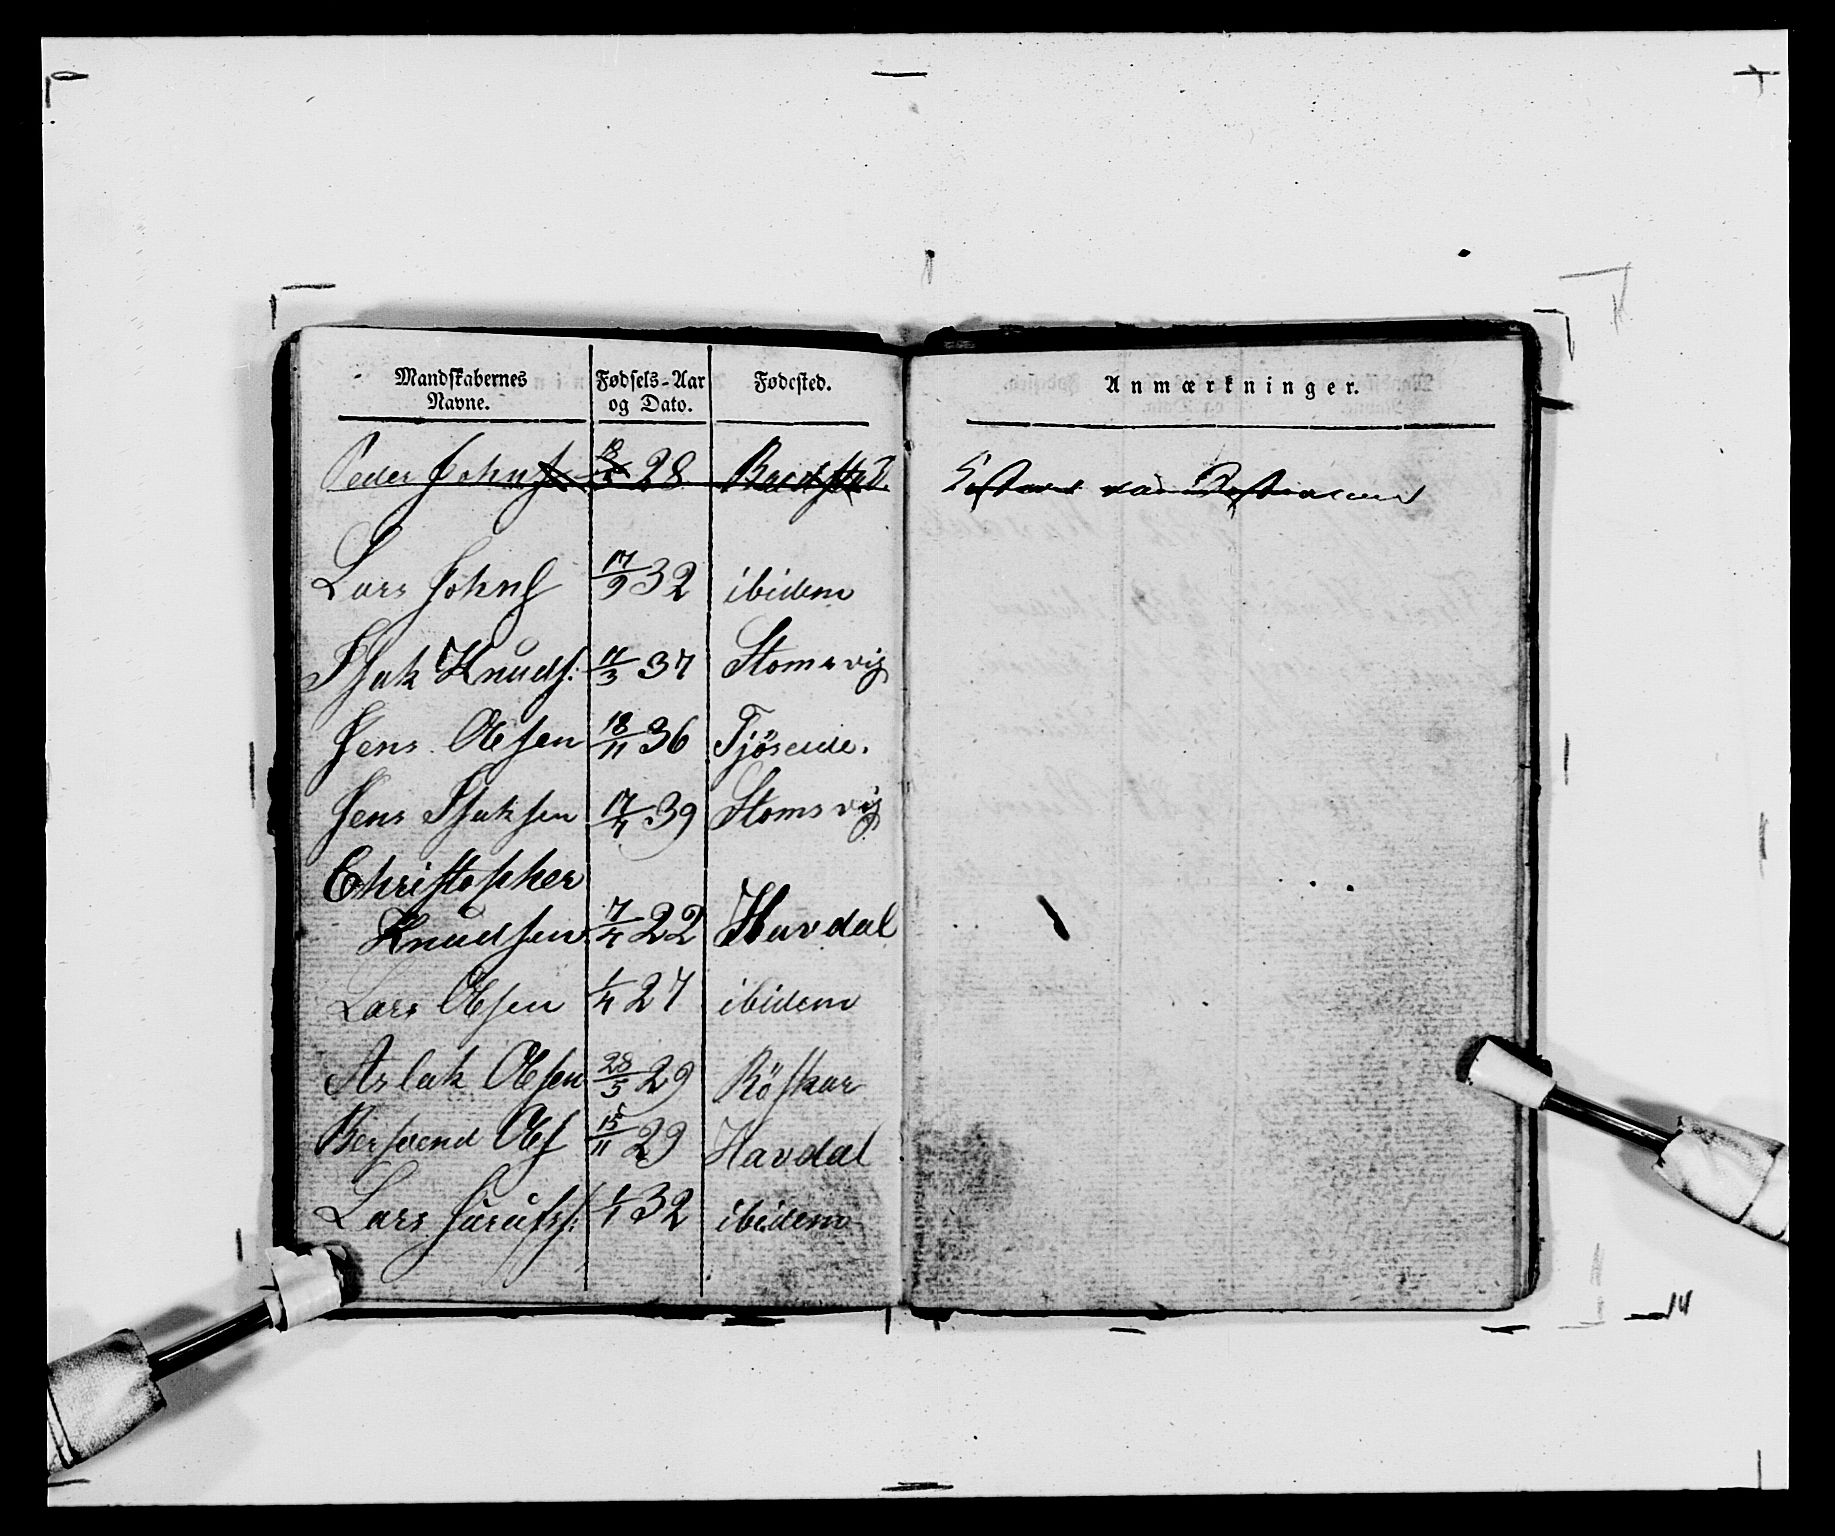 Mandskabernes Navne. Fødsels-Aar og Dato. Fødested. Anmærkninger.
Peder Johns 28
Lars Johns 17/9 32 ibidem
Isak Knuds: 11/3 37 Stomsvig
Jens Olsen 18/11 36 Tjöseide.
Jens Isaksen 17/4 39 Stomsvig
Christopher
Knudsen 7/4 22 Havdal
Lars Olsen 1/4 27 ibidem
Aslak Olsen 28/5 29 Röskar
Bersvend Ols 15/11 29 Havdal
Lars 1/1 32 ibidem
14